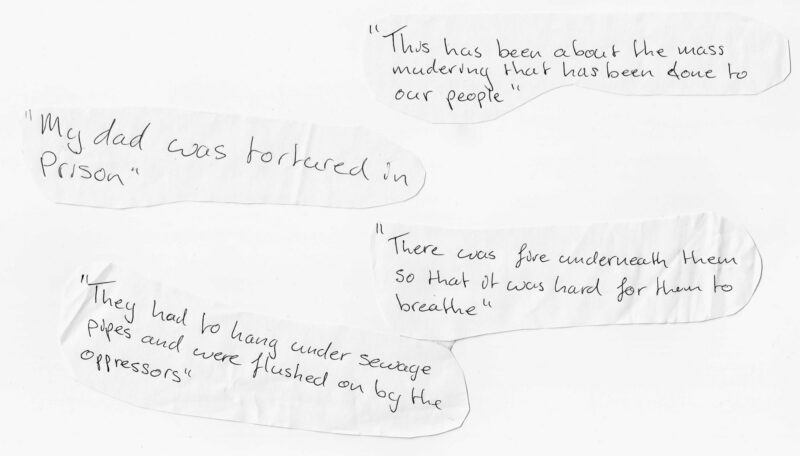 "This has been about the mass
mudering that has been done to
our people"
"My dad was tortured in
Prison"
"There was fire underneath them
so that it was hard for them to
breathe"
"They had to hang under sewage
pipes and were flushed on by the
oppressors"